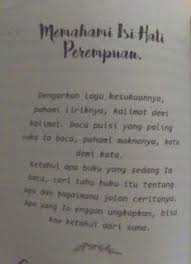 Memahami Isi Hati
Perempuan.
Dengarkan lagu kesukaannya,
pahami liriknya, kalimat demi
kalimat. Baca puisi yang paling
suka ia baca, pahami maknanya, kata
demi kata.
Ketahui apa buku yang sedang Ia
baca, cari tahu buku itu tentang
apa dan bagaimana jalan ceritanya.
Apa yang Ia enggan ungkapkan, bisa
kau ketahui dari sana.